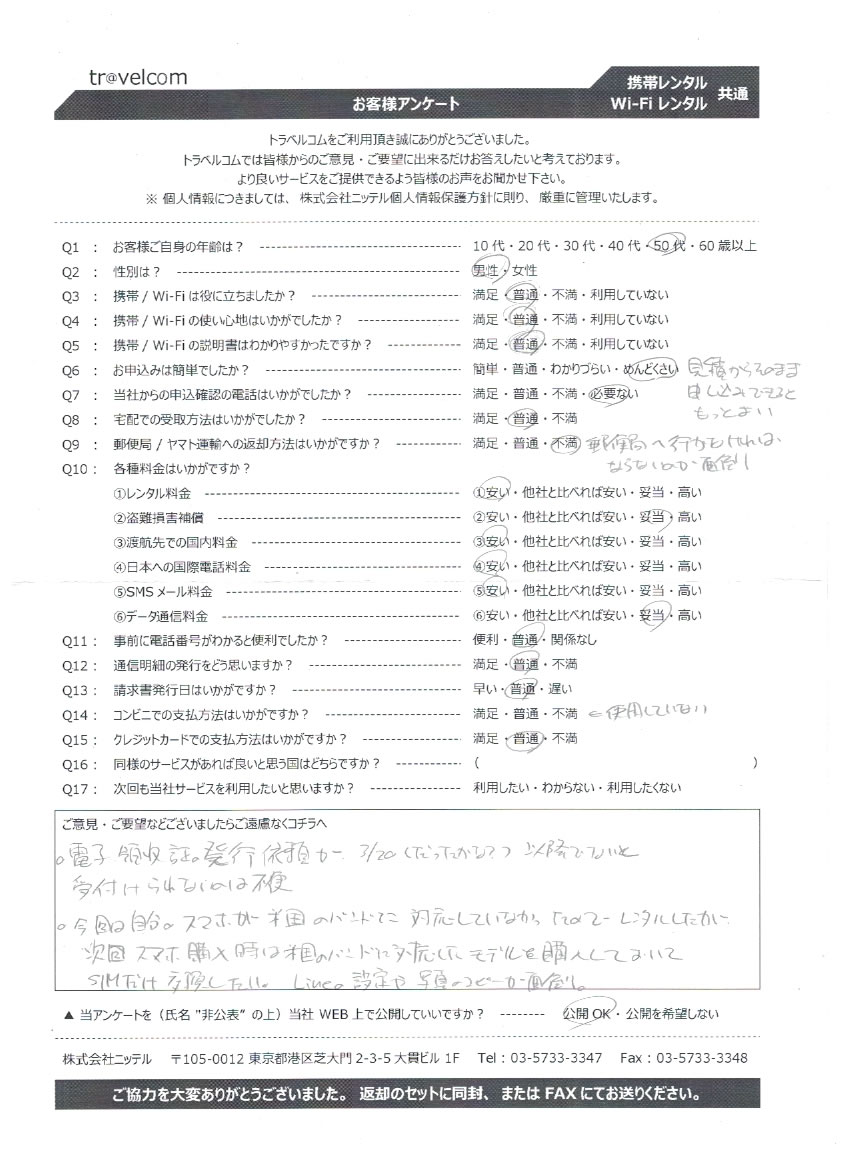 tr@velcom
お客様アンケート
携帯レンタル
Wi-Fi レンタル
共通
トラベルコムをご利用頂き誠にありがとうございました。
トラベルコムでは皆様からのご意見・ご要望に出来るだけお答えしたいと考えております。
より良いサービスをご提供できるよう皆様のお声をお聞かせ下さい。
※ 個人情報につきましては、株式会社ニッテル個人情報保護方針に則り、厳重に管理いたします。
Q1 ： お客様ご自身の年齢は？ 10代・20代・30代・40代・50代・60歳以上
Q2 ： 性別は？ 男性・女性
Q3 ： 携帯 / Wi-Fi は役に立ちましたか？ 満足・普通・不満・利用していない
Q4 ： 携帯 / Wi-Fi の使い心地はいかがでしたか？ 満足・普通・不満・利用していない
Q5 ： 携帯 / Wi-Fi の説明書はわかりやすかったですか？ 満足・普通・不満・利用していない
Q6 ： お申込みは簡単でしたか？ 簡単・普通・わかりづらい・めんどくさい 見積からそのまま
Q7 ： 当社からの申込確認の電話はいかがでしたか？ 満足・普通・不満・必要ない 申し込みできると
もっとよい
Q8 ： 宅配での受取方法はいかがでしたか？ 満足・普通・不満
Q9 ： 郵便局 / ヤマト運輸への返却方法はいかがですか？ 満足・普通・不満 郵便局へ行かなければ
ならないのが面倒
Q10： 各種料金はいかがですか？
①レンタル料金 ①安い・他社と比べれば安い・妥当・高い
②盗難損害補償 ②安い・他社と比べれば安い・妥当・高い
③渡航先での国内料金 ③安い・他社と比べれば安い・妥当・高い
④日本への国際電話料金 ④安い・他社と比べれば安い・妥当・高い
⑤SMS メール料金 ⑤安い・他社と比べれば安い・妥当・高い
⑥データ通信料金 ⑥安い・他社と比べれば安い・妥当・高い
Q11： 事前に電話番号がわかると便利でしたか？ 便利・普通・関係なし
Q12： 通信明細の発行をどう思いますか？ 満足・普通・不満
Q13： 請求書発行日はいかがですか？ 早い・普通・遅い
Q14： コンビニでの支払方法はいかがですか？ 満足・普通・不満 ←使用していない
Q15： クレジットカードでの支払方法はいかがですか？ 満足・普通・不満
Q16： 同様のサービスがあれば良いと思う国はどちらですか？ （ ）
Q17： 次回も当社サービスを利用したいと思いますか？ 利用したい・わからない・利用したくない
ご意見・ご要望などございましたらご遠慮なくコチラへ
。電子領収証の発行依頼が 3/20(だったかな?) 以降でないと
受付けられないのは不便
。今回は自分のスマホが米国のバンドに対応していなかったのでレンタルしたが
次回スマホ購入時は米国のバンドに対応したモデルを購入しておいて
SIMだけ交換したい。Lineの設定や写真のコピーが面倒。
▲ 当アンケートを（氏名 "非公表" の上）当社 WEB 上で公開していいですか？ 公開OK・公開を希望しない
株式会社ニッテル 〒105-0012 東京都港区芝大門 2-3-5 大貫ビル 1F Tel：03-5733-3347 Fax：03-5733-3348
ご協力を大変ありがとうございました。返却のセットに同封、または FAX にてお送りください。